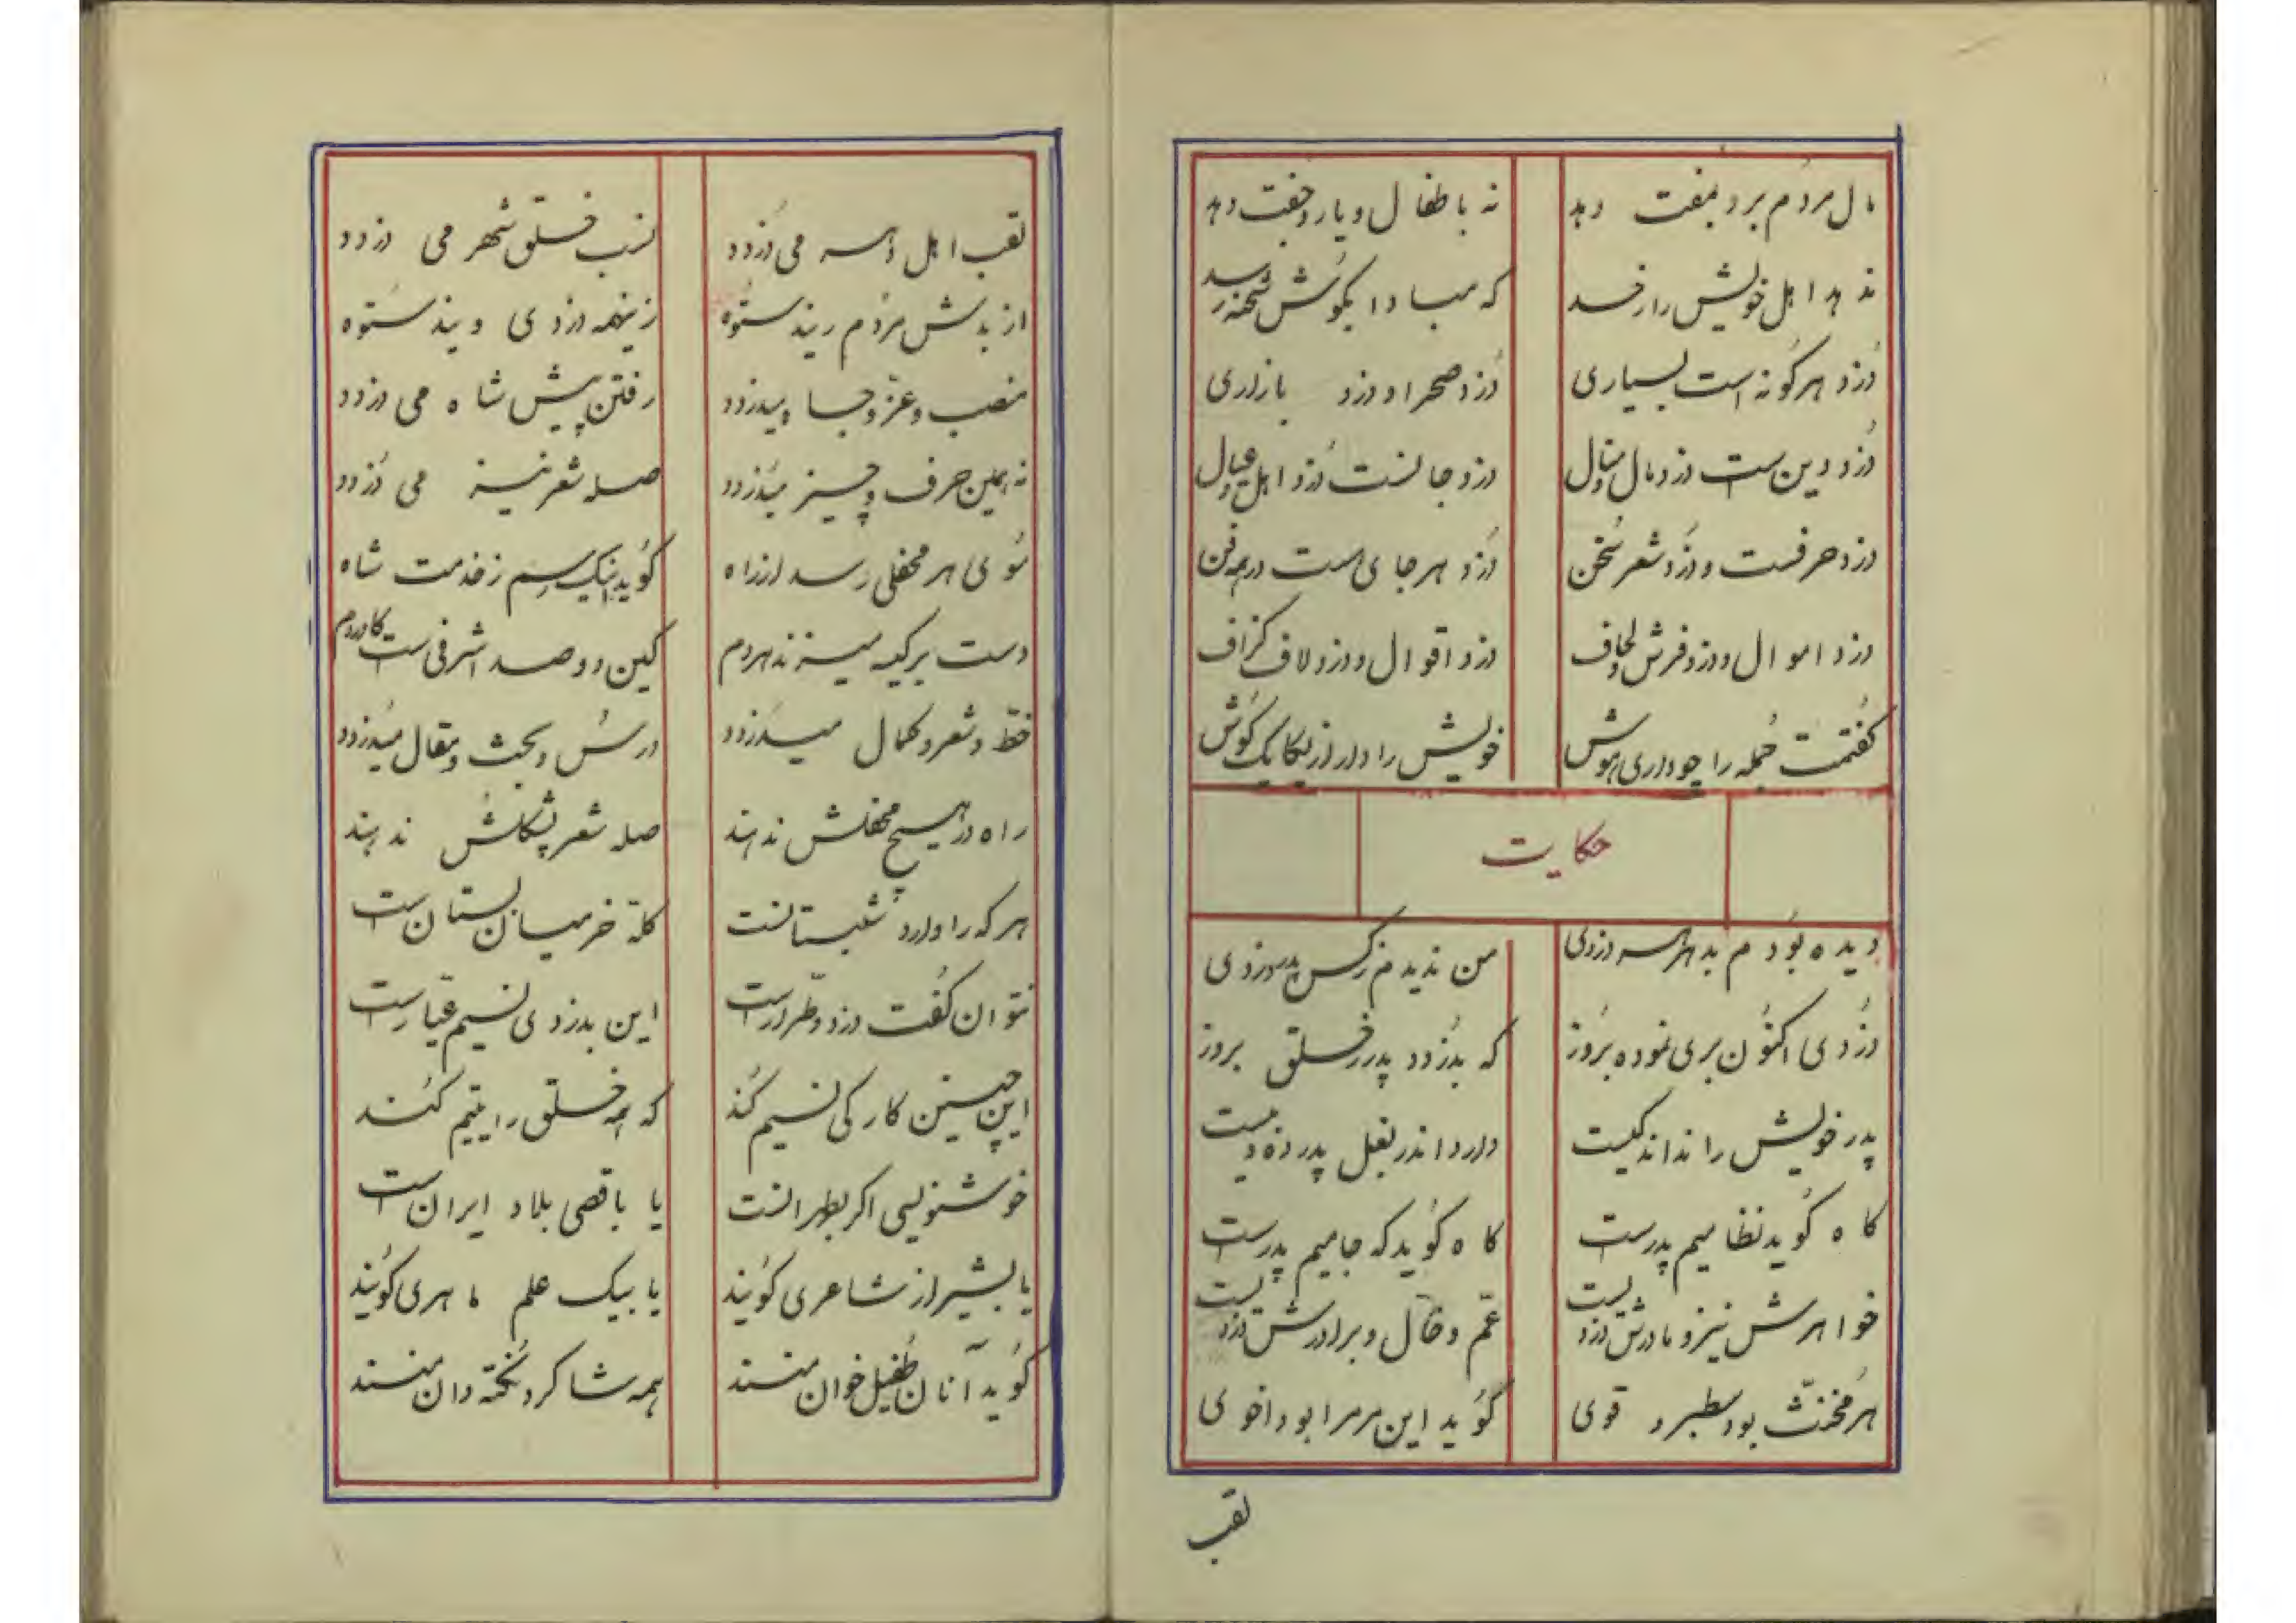 مال مردم برد بمفت دهد
نه باطفال و یار و جفت دهد
ندهد اهل خویش را رسد
که مبادا بگوش شحنه رسد
دُزد هر گونه است بسیاری
دُزد صحرا و دزد بازاری
دُزد دین است دزد مال و منال
دزد جانست دُزد اهل و عیال
دزد حرفست و دزد شعر و سُخن
دُزد هر جای است در همه فن
دزد اموال و دزد فرش و لحاف
دزد اقوال و دزد لاف و گزاف
گفتمت جُمله را چو داری هوش
خویش را دار از یکایک گوش
حکایت
دیده بودم بدهر هر دزدی
من ندیدم ز کس پدر دزدی
دُزدی اکنون بری نموده بروز
که بدزدد پدر ز خلق بروز
پدر خویش را نداند کیست
دارد اندر بغل پدر ده و بیست
گاه گوید نظامیم پدر است
گاه گوید که جامیم پدر است
خواهرش نیز و مادرش دزدیست
عمّ و خال و برادرش دزدیست
هر مُخنّث بود سطبر و قوی
گوید این مر مرا بود اخوی
لقب
لقب اهل دهر می دزدد
نسب خلق شهر می دزدد
از بدش مردم رند ستوه
زینهمه دزدی ویند ستوه
منصب و عزّ و جاه میدزدد
رفتن پیش شاه می دزدد
نه همین حرف و چیز میدزدد
صله شعر نیز می دزدد
سوی هر محفلی رسد از راه
گوید اینک رسم ز خدمت شاه
دست بر کیسه میزند هر دم
کین دو صد اشرفی است کاوردم
خطّ و شعر و کمال میدزدد
درس و بحث و مقال میدزدد
راه در هیچ محفلش ندهند
صله شعر پشگلش ندهند
هر که را دارد شبستانست
کلّه خر میان بستان است
نتوان گفت دزد و طرّار است
این بدزدی نسیم عیّار است
این چنین کار کی نسیم کند
که همه خلق را یتیم کند
خوشنویسی اگر بطهرانست
یا باقصی بلاد ایران است
یا بشیراز شاعری گویند
یا بیک علم ماهری گویند
گوید آنان طُفیل خوان منند
همه شاگرد نُخته دان منند